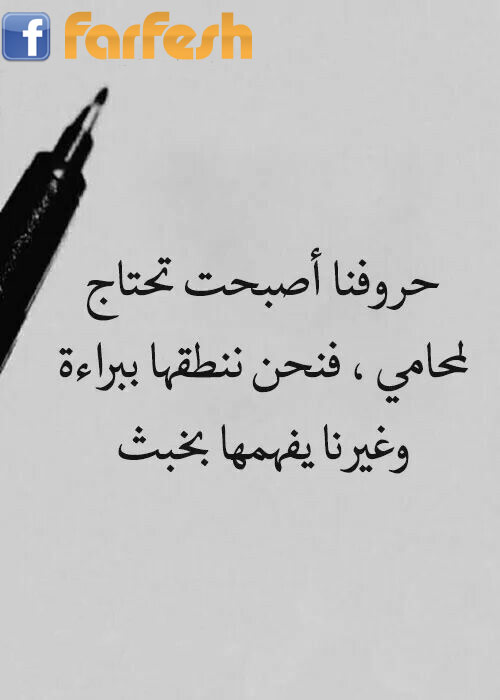 f farfesh
حروفنا أصبحت تحتاج
لمحامي ، فنحن ننطقها ببراءة
وغيرنا يفهمها بخبث